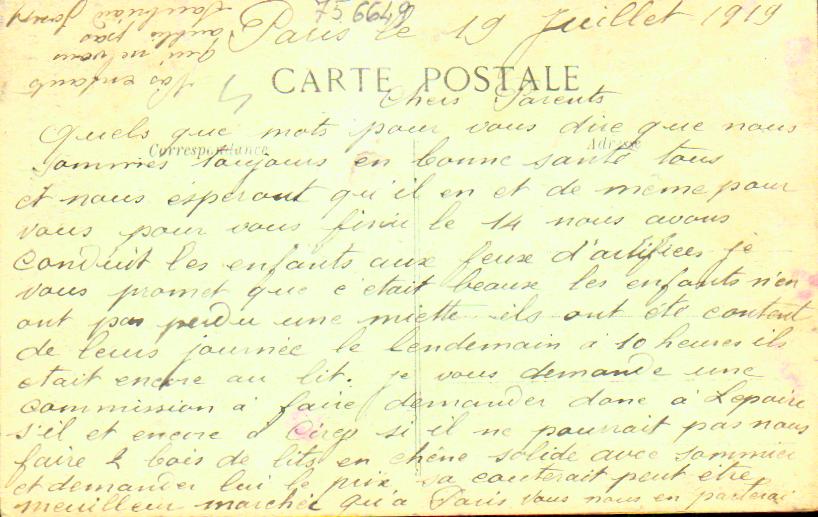 75 6649
Paris le 19 Juillet 1919
CARTE POSTALE
Chers Parents
Correspondance
Adresse
Quels que mots pour vous dire que nous
sommes toujours en bonne santé tous
et nous esperont qu'il en et de meme pour
vous pour vous finir le 14 nous avons
conduit les enfants aux feux d'artifices je
vous promet que c'etait beaux les enfants n'en
ont pas perdu une miette ils ont été content
de leurs journée le lendemain à 10 heures ils
etait encore au lit. je vous demande une
commission à faire demander donc à Lepaire
s'il et encore à Cirey si il ne pourrait pas nous
faire 2 bois de lits en chêne solide avec sommier
et demander lui le prix sa couterait peut être
meuilleur marché qu'a Paris vous nous en parlerai
Vos enfants
qui ne vous
oublie pas